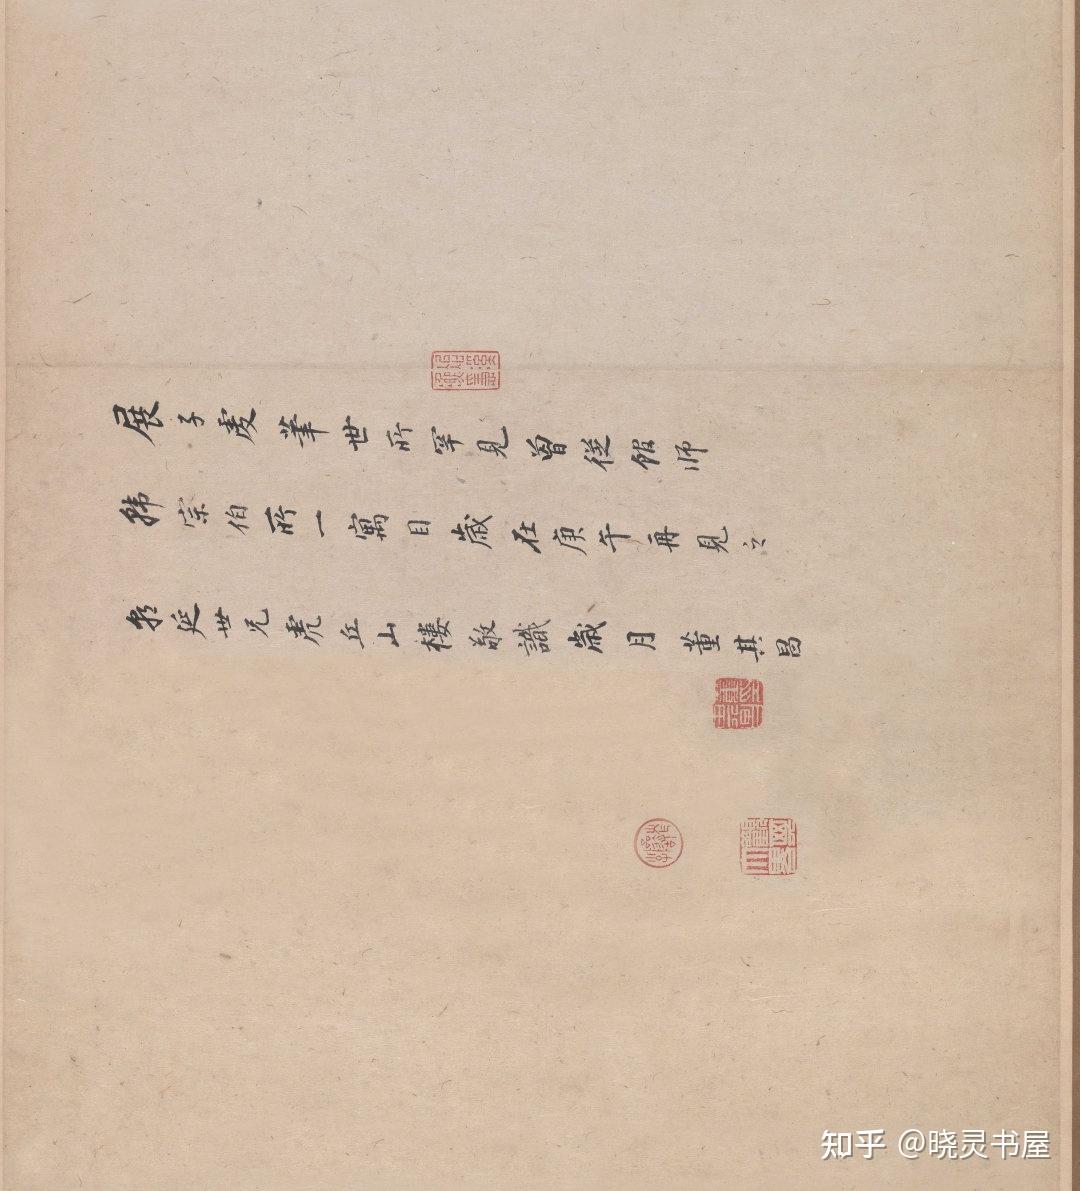 展子虔筆世所罕見曾從館師
韓宗伯所一寓目歲在庚午再見於
朝延世兄虎丘山樓敬識歲月董其昌
知乎 @晓灵书屋